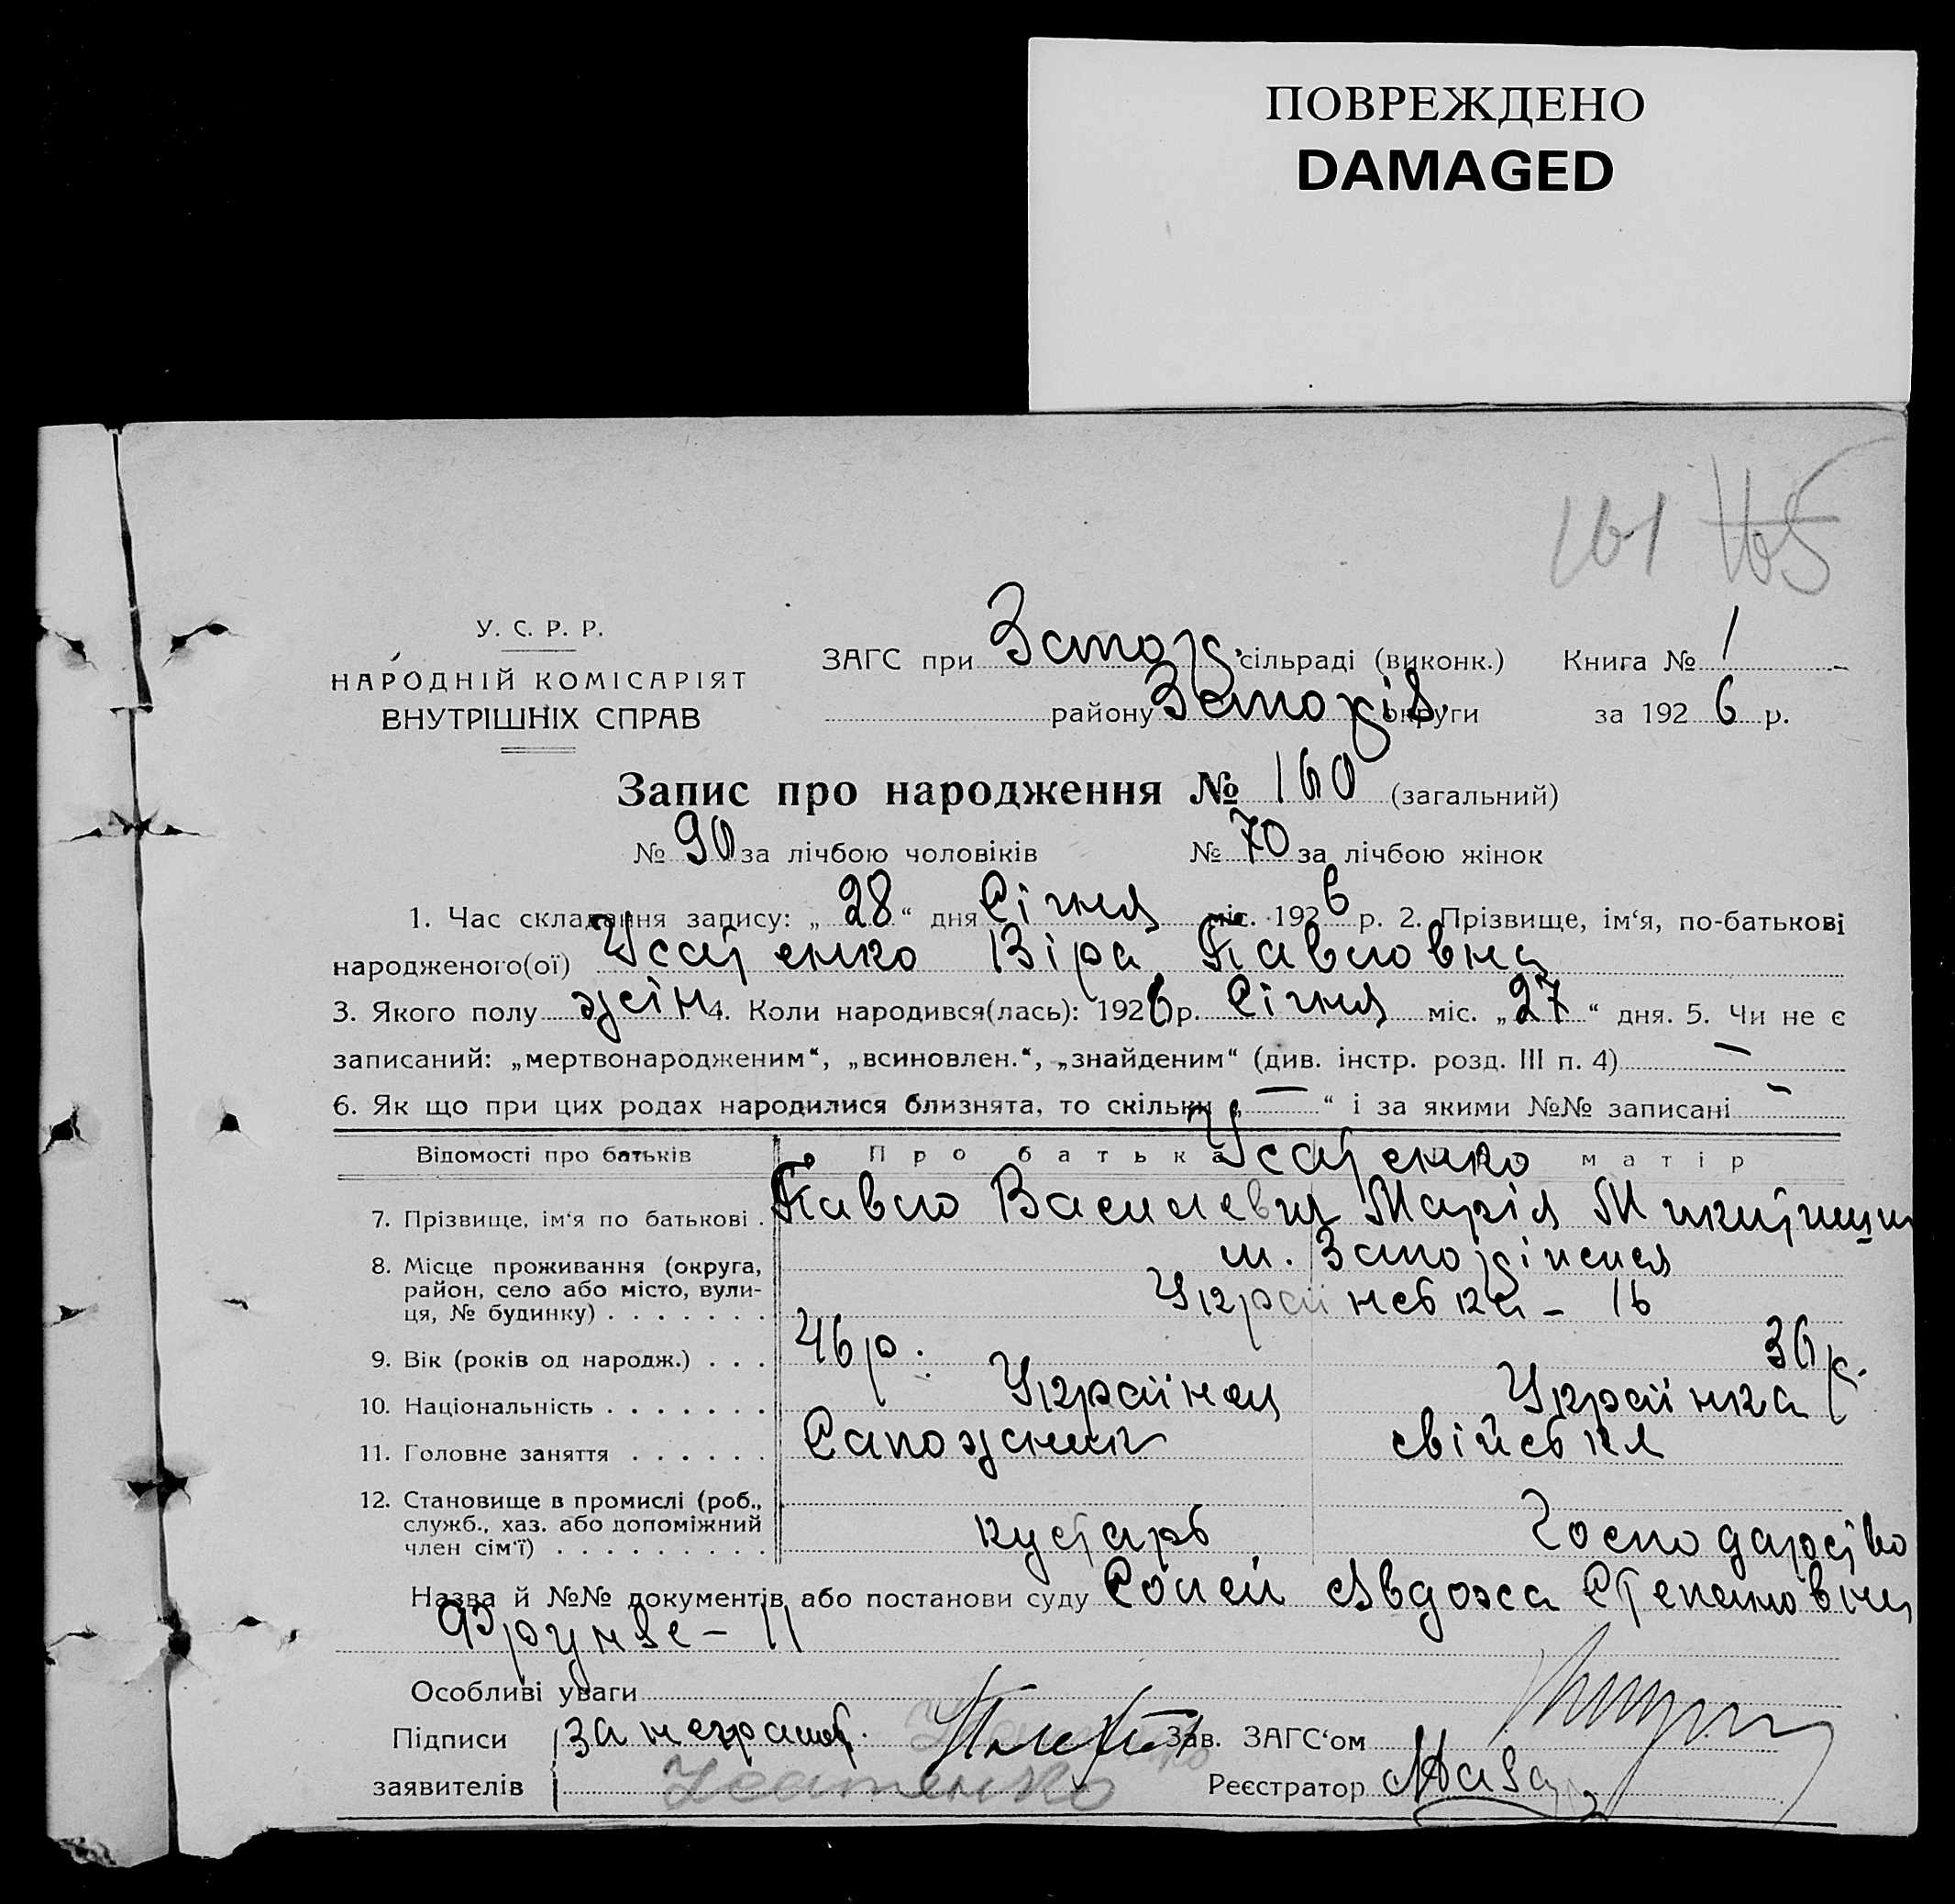 ПОВРЕЖДЕНО
DAMAGED
161 165
У. С. Р. Р.
НАРОДНІЙ КОМІСАРІЯТ
ВНУТРІШНІХ СПРАВ
ЗАГС при Запор. сільраді (виконк.) Книга № 1
району Запоріз. округи за 1926 р.
Запис про народження № 160 (загальний)
№ 90 за лічбою чоловіків № 70 за лічбою жінок
1. Час складання запису: „28“ дня Січня міс. 1926 р. 2. Прізвище, ім‘я, по-батькові
народженого(ої) Усатенко Віра Павловна
3. Якого полу жін 4. Коли народився(лась): 1926 р. Січня міс. „27“ дня. 5. Чи не є
записаний: „мертвонародженим“, „всиновлен.“, „знайденим“ (див. інстр. розд. III п. 4) —
6. Як що при цих родах народилися близнята, то скільки „—“ і за якими №№ записані —
Відомості про батьків Про батька Усатенко матір
7. Прізвище, ім‘я по батькові . Павло Василевич Марія
8. Місце проживання (округа, район, село або місто, вулиця, № будинку) . . . . . . . м.
Українська - 16
9. Вік (років од народж.) . . . 46 р. 36 р.
10. Національність . . . . . . . Українец Українка
11. Головне заняття . . . . . . Сапожник свійськя
12. Становище в промислі (роб., служб., хаз. або допоміжний член сім‘ї) . . . . . . . . . кустарь Господарство
Назва й №№ документів або постанови суду Явдоха Степановна
Фрунзе - 11
Особливі уваги
Підписи за неграмот. Зав. ЗАГС‘ом
заявителів Усатенко Реєстратор